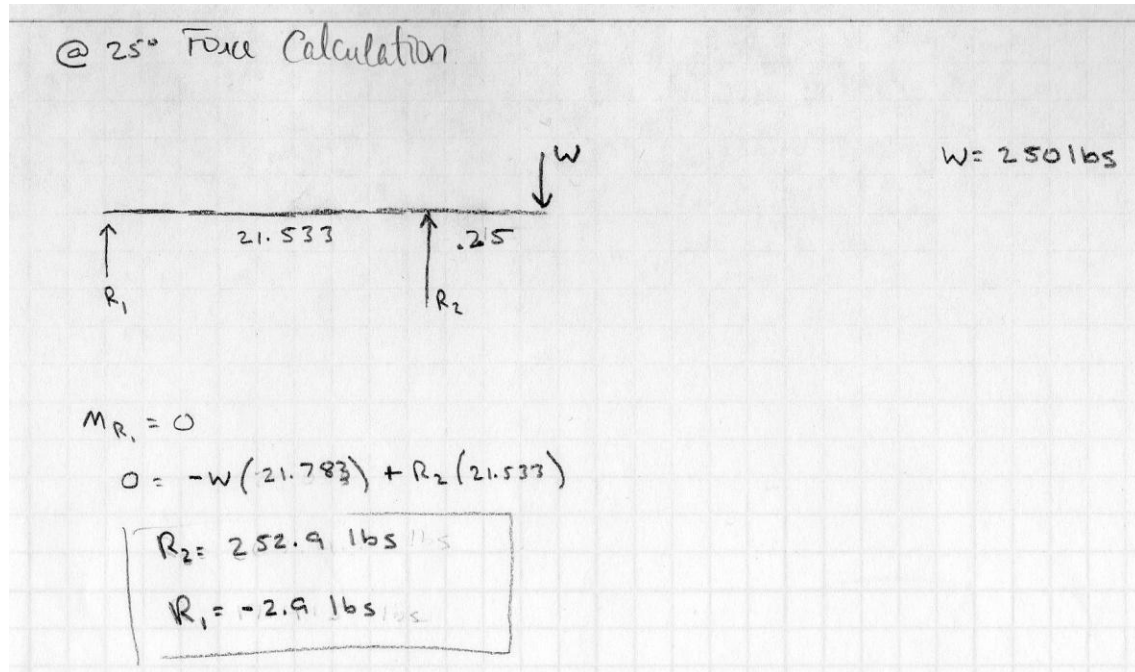 @ 25° Force Calculation
W
W= 250 lbs
21.533
.25
R₁
R₂
M_R₁ = 0
0 = -W(21.783) + R₂(21.533)
R₂= 252.9 lbs
R₁= -2.9 lbs